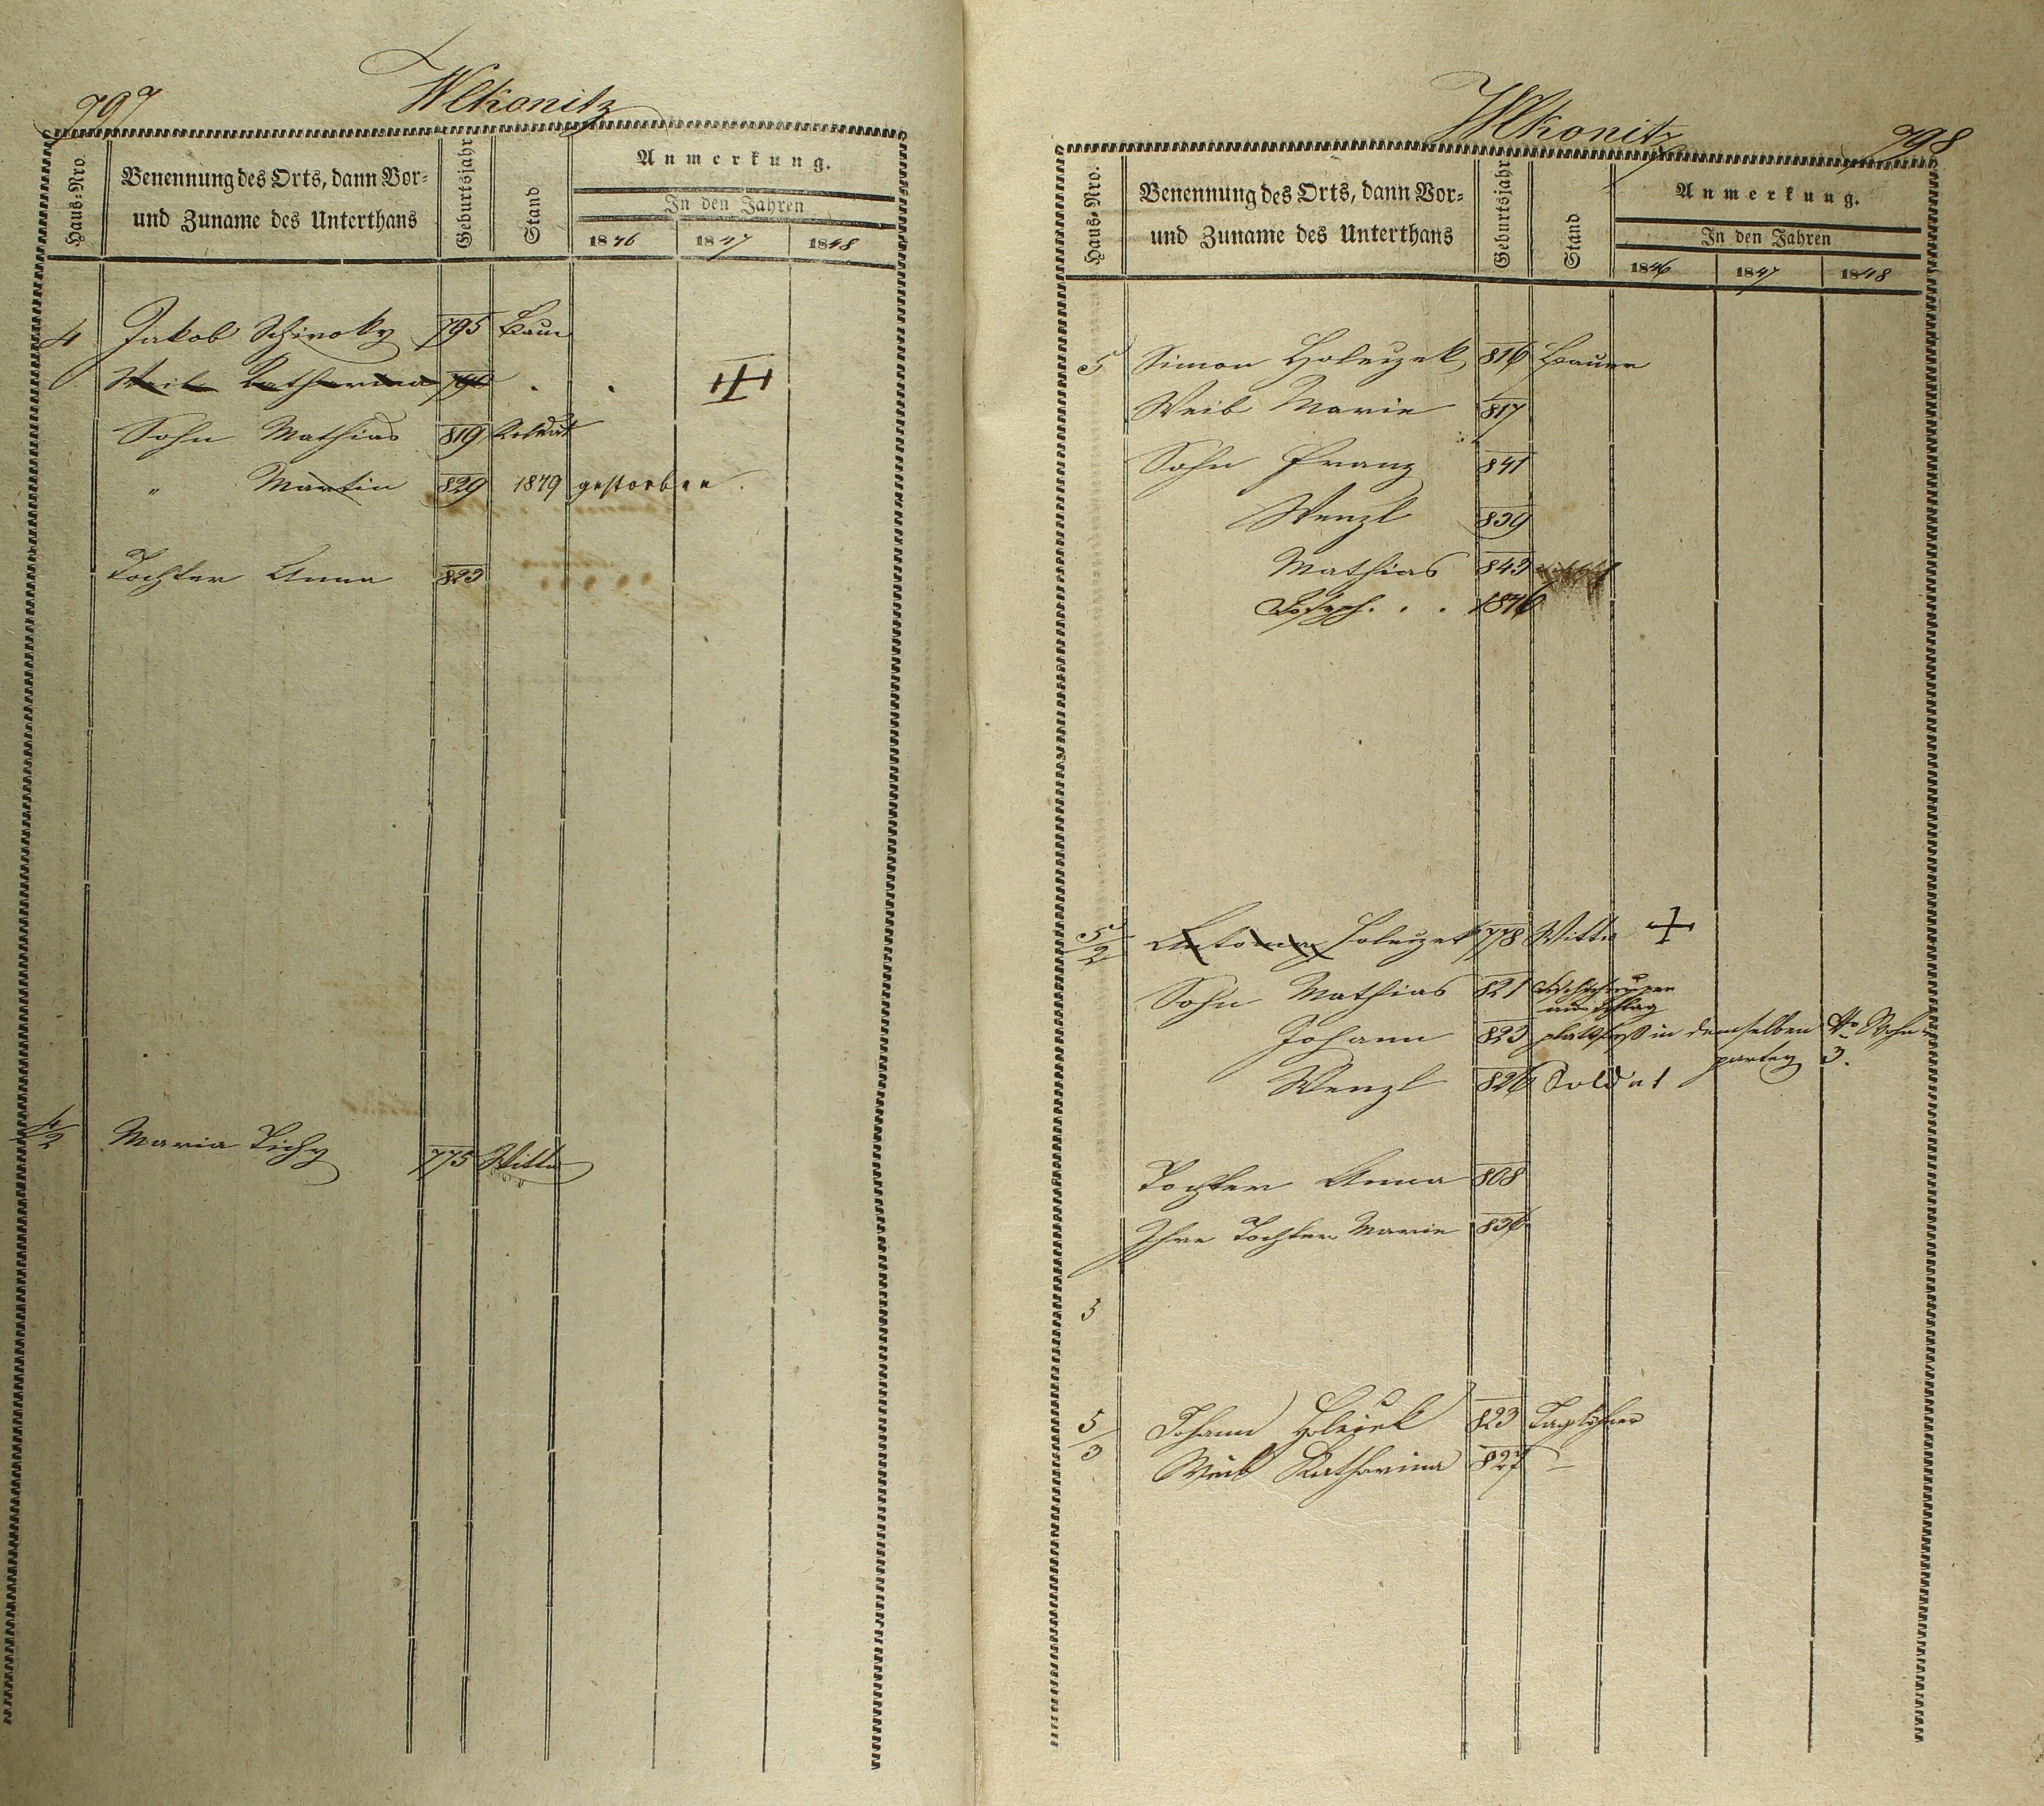 797
Wlkonitz
Haus-Nro.
Benennung des Orts, dann Vor-
und Zuname des Unterthans
Geburtsjahr
Stand
Anmerkung.
In den Jahren
1846 1847 1848
4 Jakob Schiroky 795 Bauer
Weib Katharina 796
Sohn Mathias 819 Soldat
" Martin 829 1849 gestorben.
Tochter Anna 823
4/2 Maria Tichy 775 Wittw
Wlkonitz
798
Haus-Nro.
Benennung des Orts, dann Vor-
und Zuname des Unterthans
Geburtsjahr
Stand
Anmerkung.
In den Jahren
1846 1847 1848
5 Simon Holeczek 816 Bauer
Weib Marie 817
Sohn Franz 841
Wenzl 839
Mathias 843
Joseph . . . 1846
5/2 Holeczek 778 Wittw
Sohn Mathias 821
Johann 823 in demselben No Wohn-
partey 3.
Wenzl 826 Soldat
Tochter Anna 808
Ihre Tochter Marie 836
5
5/3 Johann Holeček 823 Taglöhner
Weib Katharina 827 –